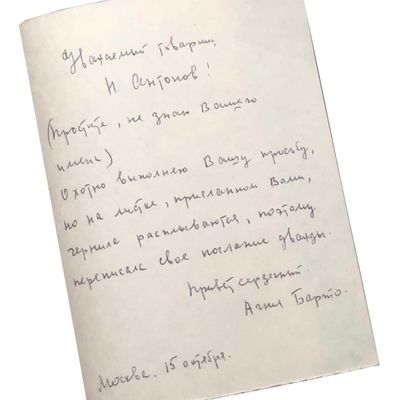 Уважаемый товарищ
И. Антонов!
(Простите, не знаю Вашего
имени)
Охотно выполняю Вашу просьбу,
но на листке, присланном Вами,
чернила расплываются, поэтому
переписала свое послание дважды.
Привет сердечный.
Агния Барто.
Москва. 15 октября.